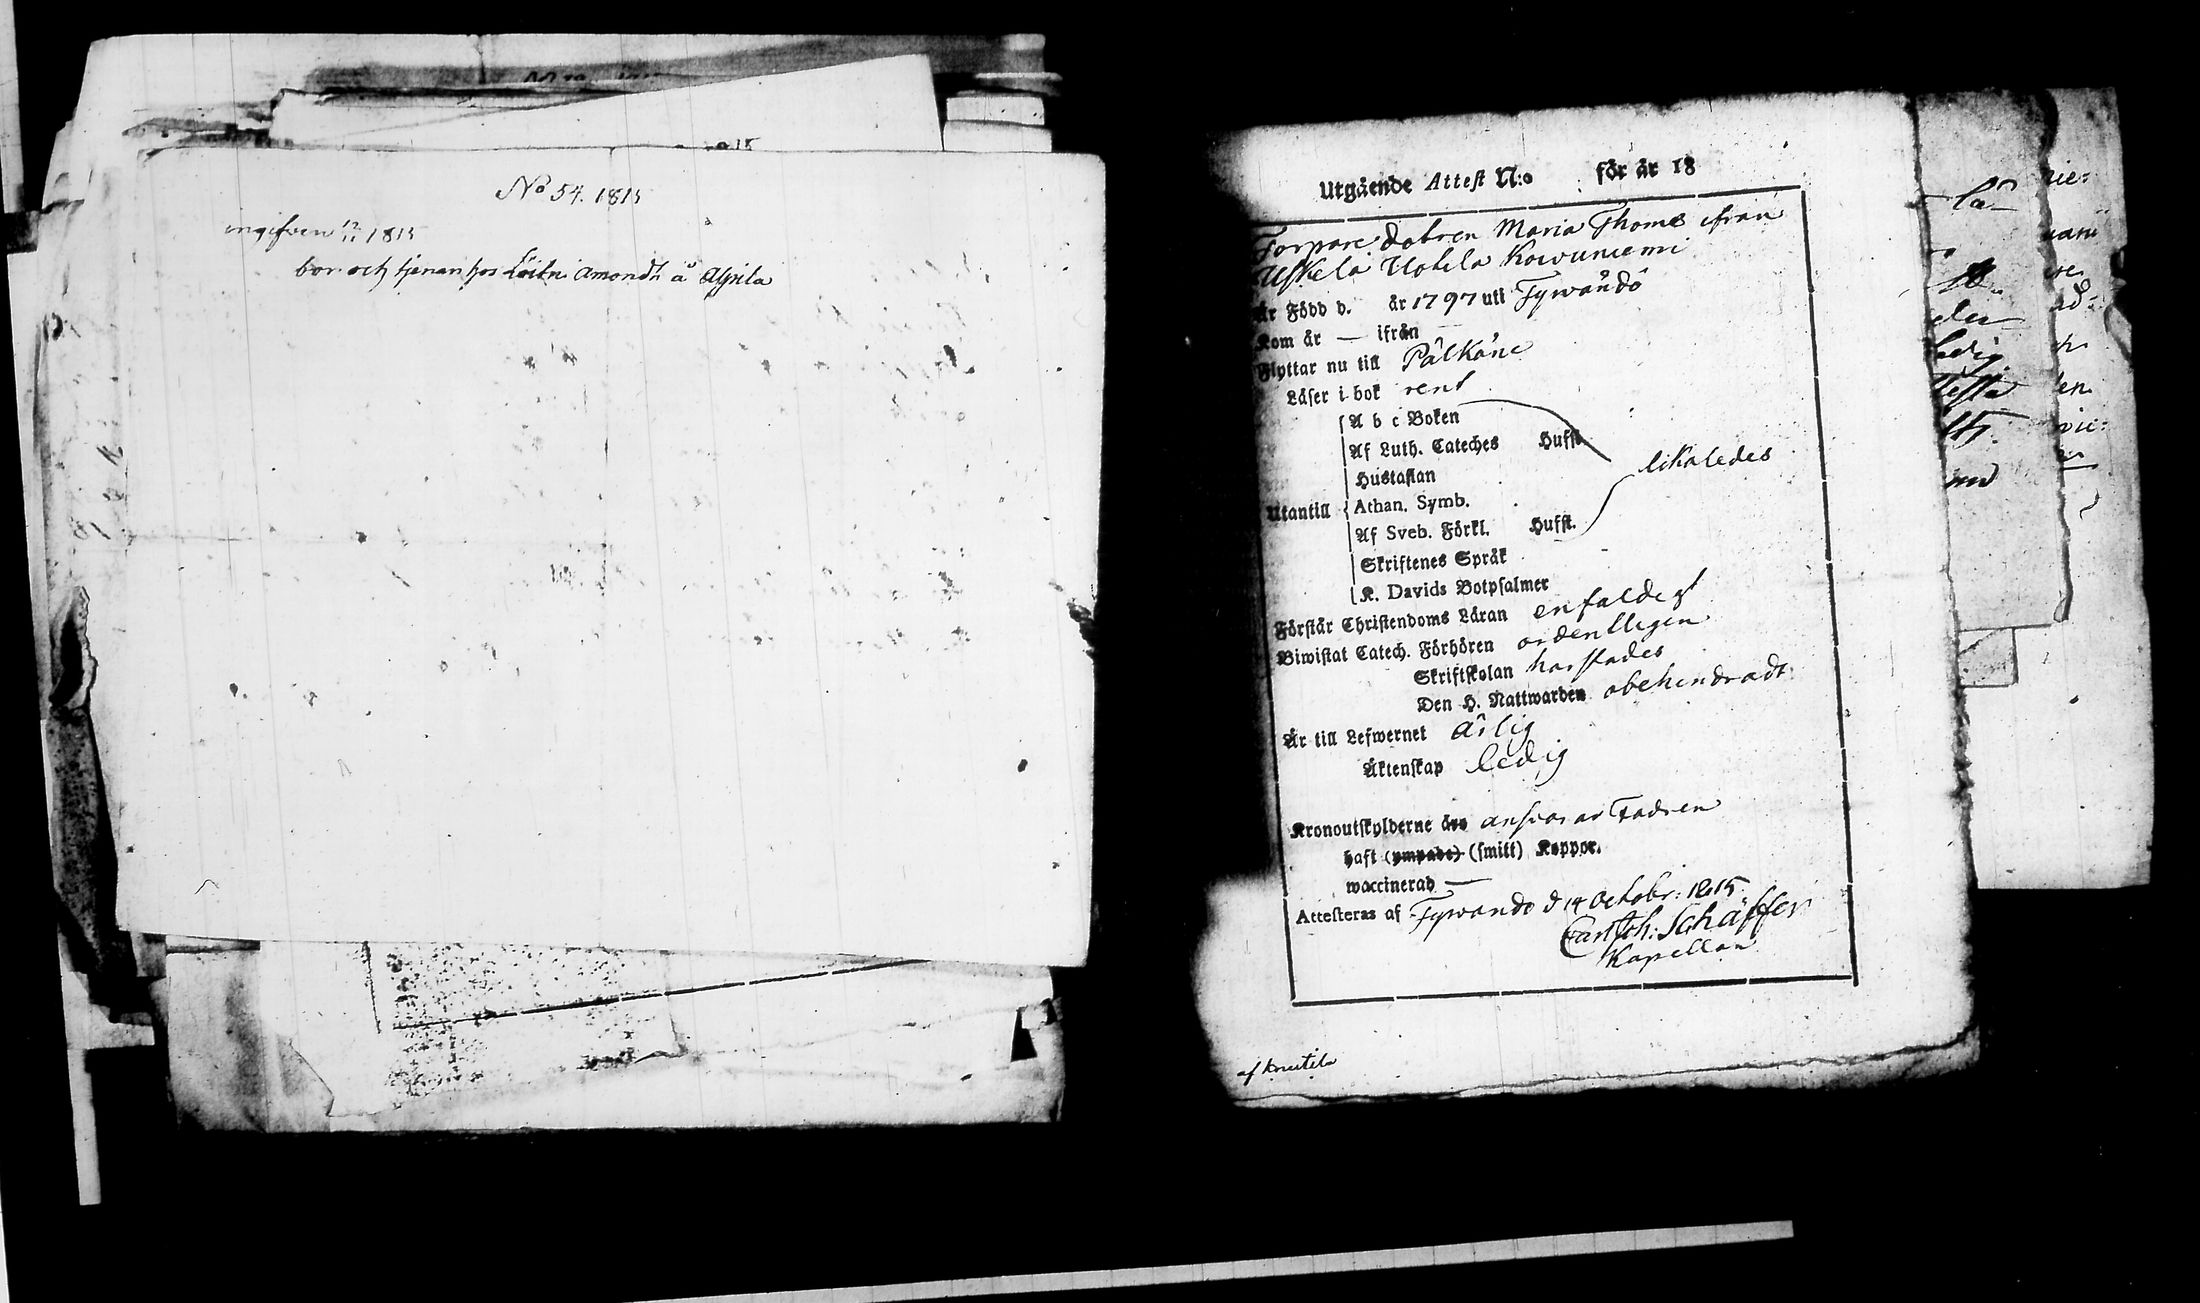 No 54. 1815
ingifven 12/11 1815
bor och tjenar hos Löitn Amondt å Aysila
Utgående Attest N:o för år 18
Torpare dotren Maria Thoms ifrån
Uskela Uotila Koivuniemi
Är Född d. år 1797 uti Tyrwändö
Kom år — ifrån —
Flyttar nu till Pälkäne
Läser i bok rent
A b c Boken
Af Luth. Cateches Hufst.
likaledes
Hustaflan
Utantill Athan. Symb.
Af Sveb. Förkl. Hufst.
Skriftenes Språk
K. Davids Botpsalmer
Förstår Christendoms Läran enfaldigt
Biwistat Catech. Förhören ordentligen
Skriftskolan harstädes
Den H. Nattwarden obehindradt
Är till Lefwernet ärlig
Äktenskap ledig
Kronoutskylderne äro ansvarar Fadren
haft (ympade) (smitt) Koppor.
waccinerad —
Attesteras af Tyrwändö d 14 Octobr: 1815
Carl Joh: Schäffer
Kapellan
af Knutila